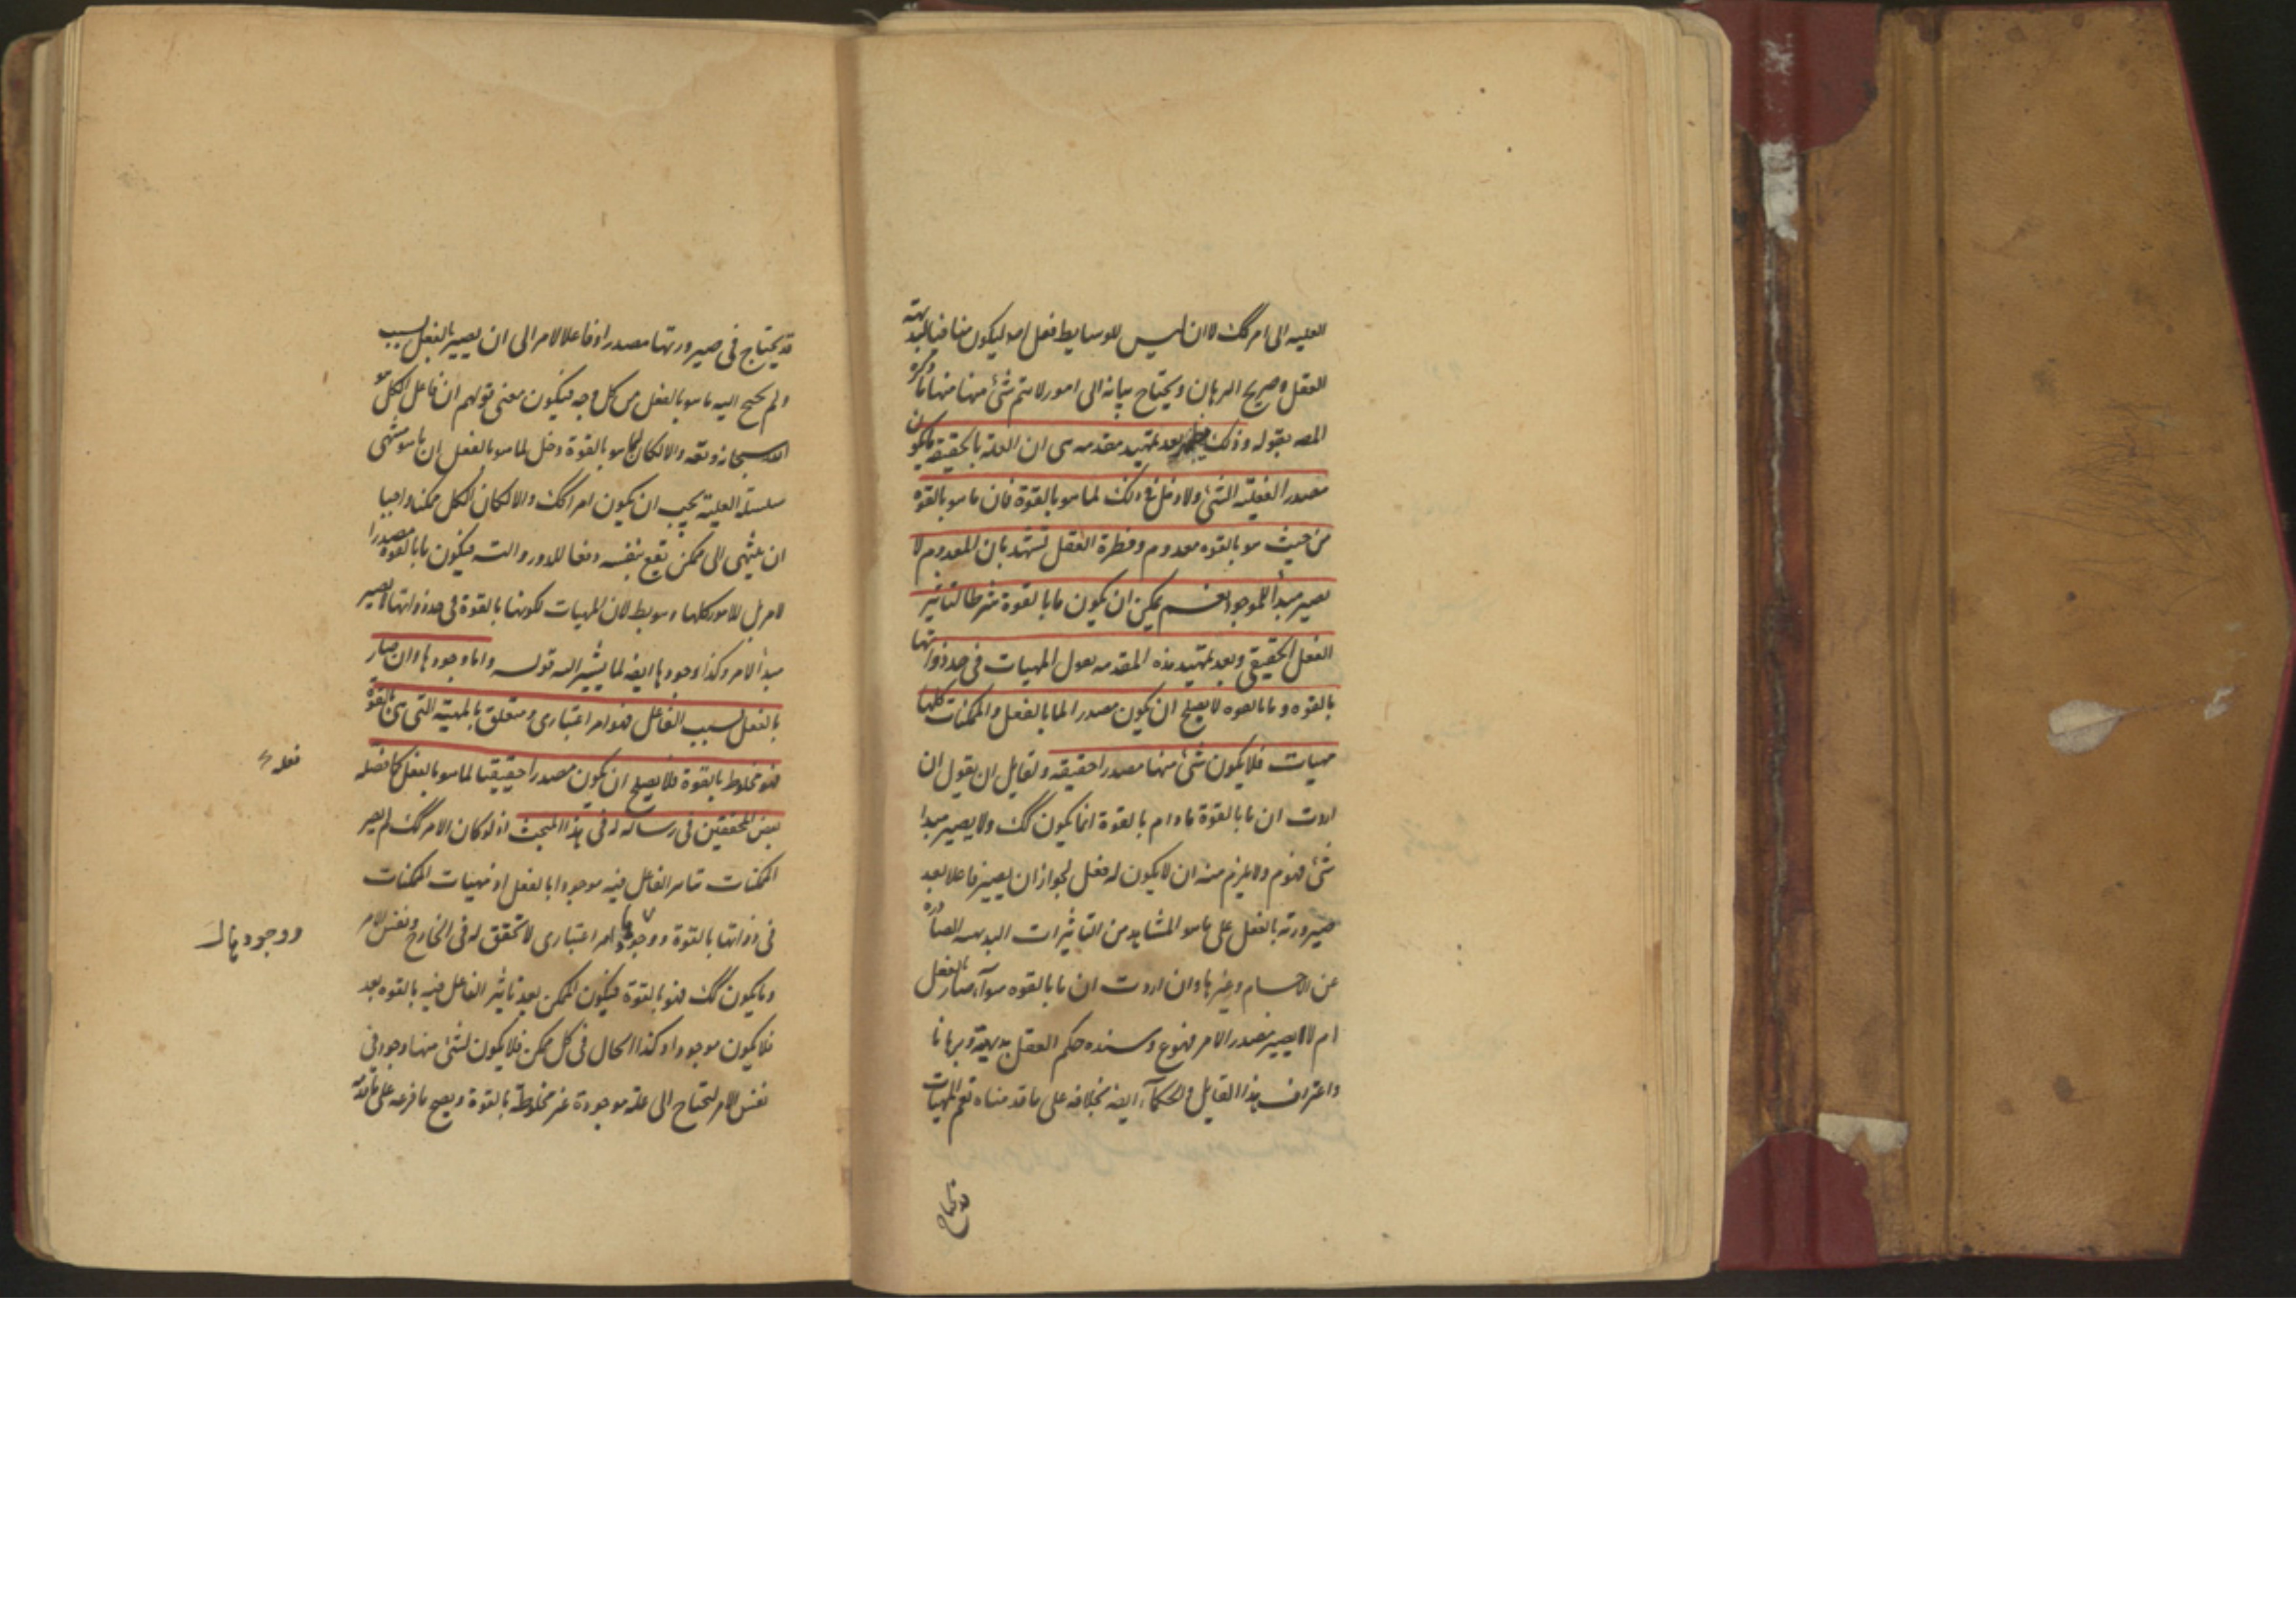 العليه الى امر كك لا ان ليس للوسايط فعل اصلا ليكون منافيا لبديهة
العقل و صريح البرهان ويحتاج بيانه الى امور لا يتم شئ منها منها ما ذكره
المصه بقوله وذلك بعد تمهيد مقدمه هى ان العلة بالحقيقة ما يكون
مصدرا لفعلية الشئ ولا دخل فى ذلك لما هو بالقوة فان ما هو بالقوه
من حيث هو بالقوه معدوم وفطرة العقل تشهد بان المعدوم لا
يصير مبدأ للموجود نعم يمكن ان يكون ما بالقوة شرطا لتاثير
الفعل الحقيقى وبعد تمهيد هذه المقدمه نقول المهيات فى حد ذواتها
بالقوه وما بالقوه لا يصلح ان يكون مصدرا لما بالفعل والممكنات كلها
مهيات فلا يكون شئ منها مصدرا حقيقه ولقايل ان يقول ان
اردت ان ما بالقوة ما دام بالقوة انما يكون كك ولا يصير مبدا
شئ فهو م ولا يلزم منه ان لا يكون له فعل لجواز ان يصير فاعلا بعد
صيرورته بالفعل على ما هو المشاهد من التاثيرات البديهيه الصادره
عن الاجسام وغيرها وان اردت ان ما بالقوه سوآء صار بالفعل
ام لا لا يصير مصدر الامر فممنوع وسنده حكم العقل بديهة وبرهانا
واعتراف هذا القايل والحكمآء ايضه بخلافه على ما قدمناه نعم المهيات
قد يحتاج
قد يحتاج فى صيرورتها مصدرا وفاعلا لامر الى ان يصير بالفعل بسبب
ولم يحتج اليه ما هو بالفعل من كل وجه فيكون معنى قولهم ان فاعل الكل هو
الله سبحانه وتعه والا لكان لما هو بالقوة دخل لما هو بالفعل ان ما هو منتهى
سلسلة العلية يجب ان يكون امرا كك والا لكان الكل ممكنا واجبا
ان ينتهى الى ممكن يقع بنفسه دفعا للدور والتسه فيكون ما بالقوة مصدرا
لامر بل للامور كلها وسويط لان المهيات لكونها بالقوة فى حد ذواتها لا يصير
مبدأ لامر وكذا وجودها ايضه لما يشير اليه قوله واما وجودها وان صار
بالفعل بسبب الفاعل فهو امر اعتبارى ومتعلق بالمهية التى هى بالقوة
فهو مخلوط بالقوة فلا يصلح ان يكون مصدرا حقيقيا لما هو بالفعل كما فصله
بعض المحققين فى رسالة له فى هذا المبحث اذ لو كان الامر كك لم يصر
الممكنات بتاثير الفاعل فيه موجودا بالفعل اذ مهيات الممكنات
فى ذواتها بالقوة ووجودها امر اعتبارى لا تحقق له فى الخارج ونفس الامر
وما يكون كك فهو بالقوة فيكون الممكن بعد تاثير الفاعل فيه بالقوه بعد
فلا يكون موجودا وكذا الحال فى كل ممكن فلا يكون لشئ منها وجود فى
نفس الامر لتحتاج الى علة موجودة غير مخلوطة بالقوة ويصح ما فرعه على ما قدمه
فعله
ووجودها